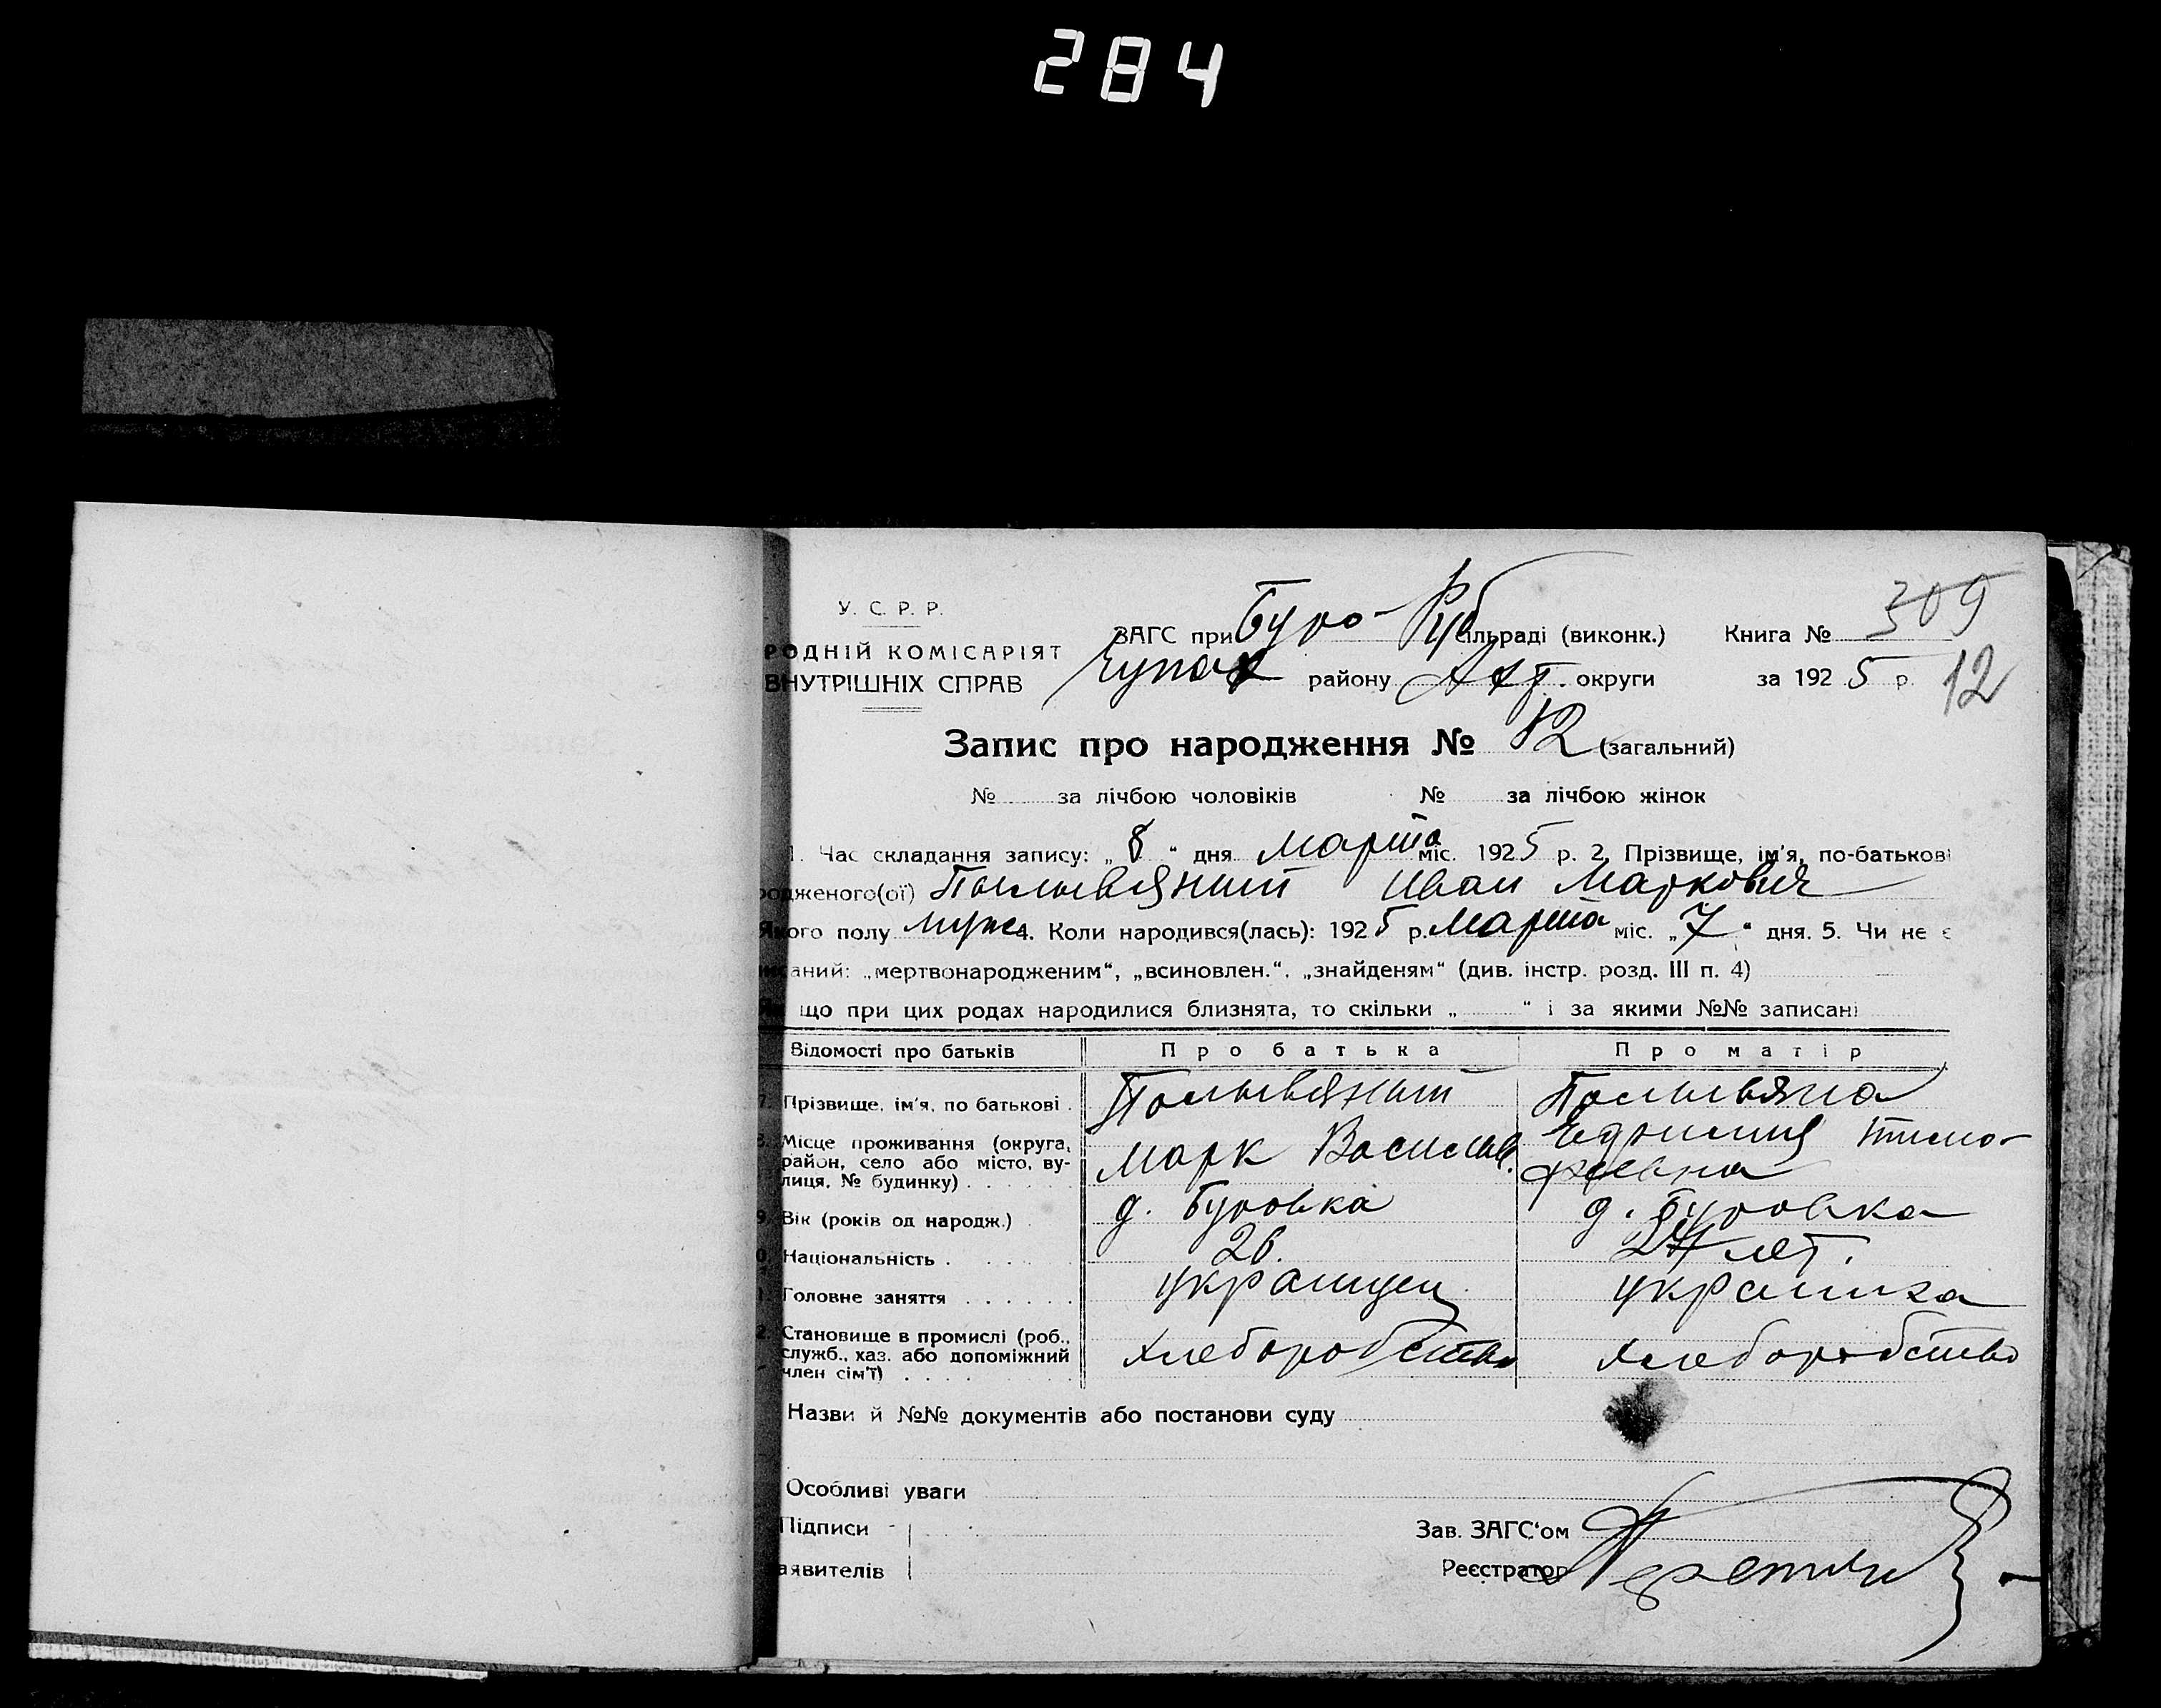 284
У. С. Р. Р.
РОДНІЙ КОМІСАРІЯТ
ВНУТРІШНІХ СПРАВ
ЗАГС при Буро-Руб сільраді (виконк.) Книга № 309
Чупах району Ахт. округи за 1925 р. 12
Запис про народження № 12 (загальний)
№ за лічбою чоловіків № за лічбою жінок
1. Час складання запису: „8“ дня марта міс. 1925 р. 2. Прізвище, ім'я, по-батькові
родженого(ої) Полывяный Иван Маркович
Якого полу муж 4. Коли народився(лась): 1925 р. марта міс. „7“ дня. 5. Чи не є
исаний: „мертвонародженим“, „всиновлен.“, „знайденям“ (див. інстр. розд. III п. 4)
що при цих родах народилися близнята, то скільки „ “ і за якими №№ записані
Відомості про батьків Про батька Про матір
7. Прізвище, ім'я, по батькові . Полывяный Полывяна
8. Місце проживання (округа, район, село або місто, вулиця, № будинку) . . . марк Васильев. тимофеевна
9. Вік (років од народж.) . д. Буровка д. Буровка
0. Національність . . . . 26. 24 лет.
1. Головне заняття . . . . . . украинец украинка
2. Становище в промислі (роб., служб., хаз. або допоміжний член сім'ї) . . . . хлеборобство хлеборобство
Назви й №№ документів або постанови суду
Особливі уваги
Підписи Зав. ЗАГС'ом
аявителів Реєстратор